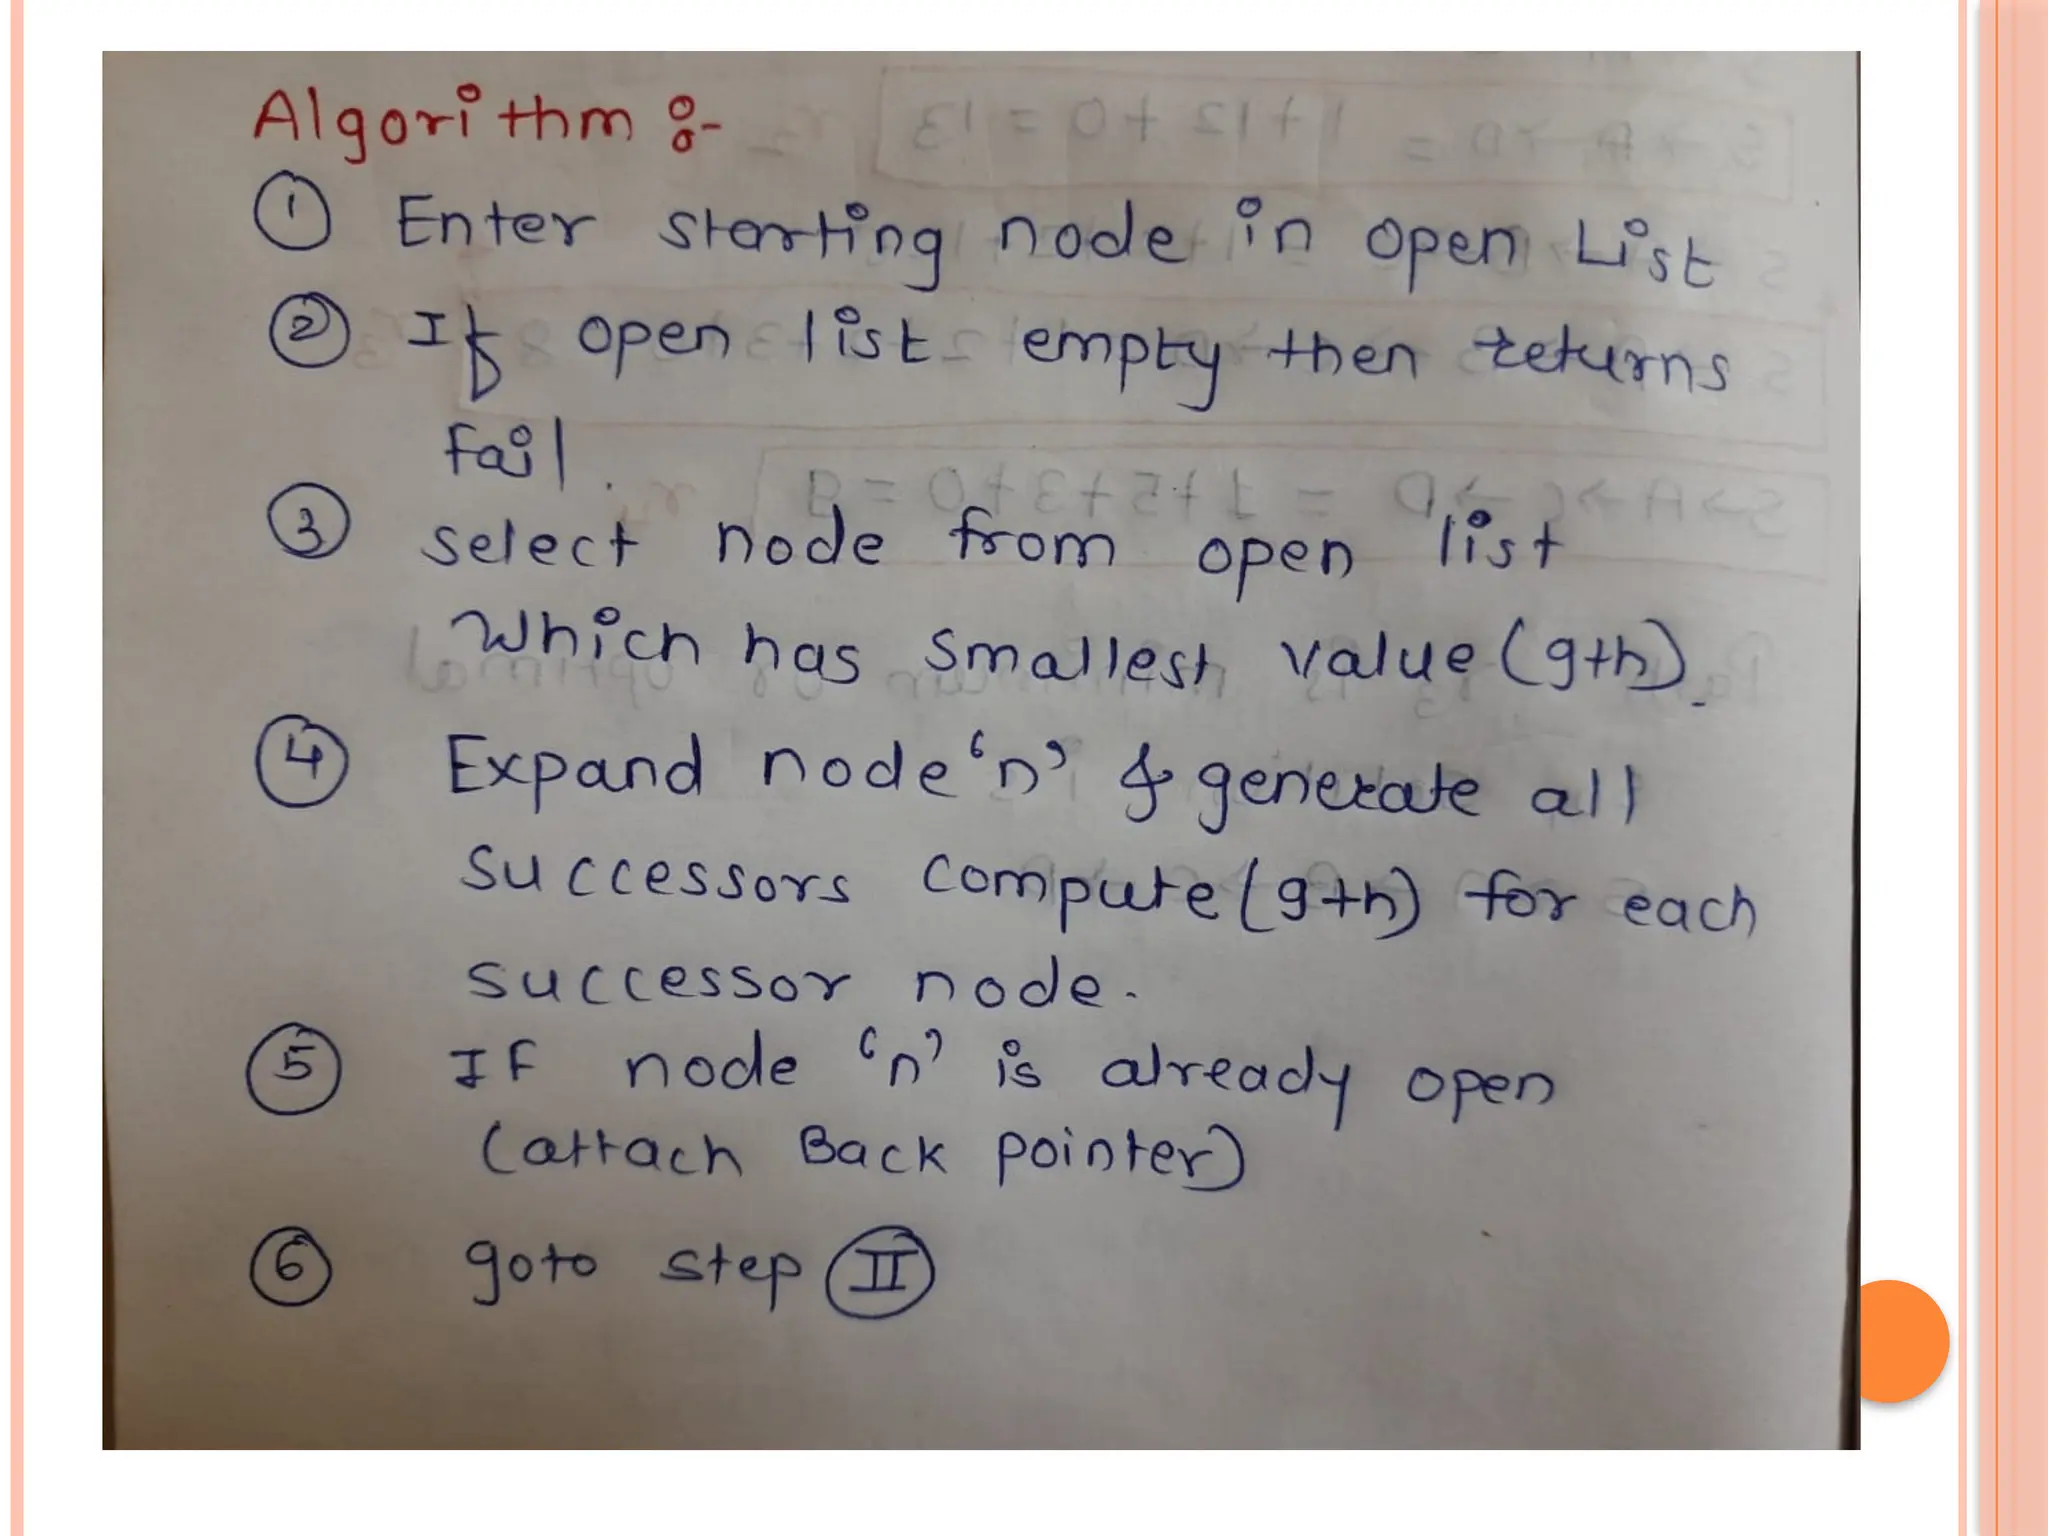 Algorithm :-
① Enter starting node in open List
② If open list empty then returns
fail.
③ select node from open list
Which has smallest value (g+h).
④ Expand node 'n' & generate all
successors compute (g+h) for each
successor node.
⑤ IF node 'n' is already open
(attach Back pointer)
⑥ goto step Ⅱ